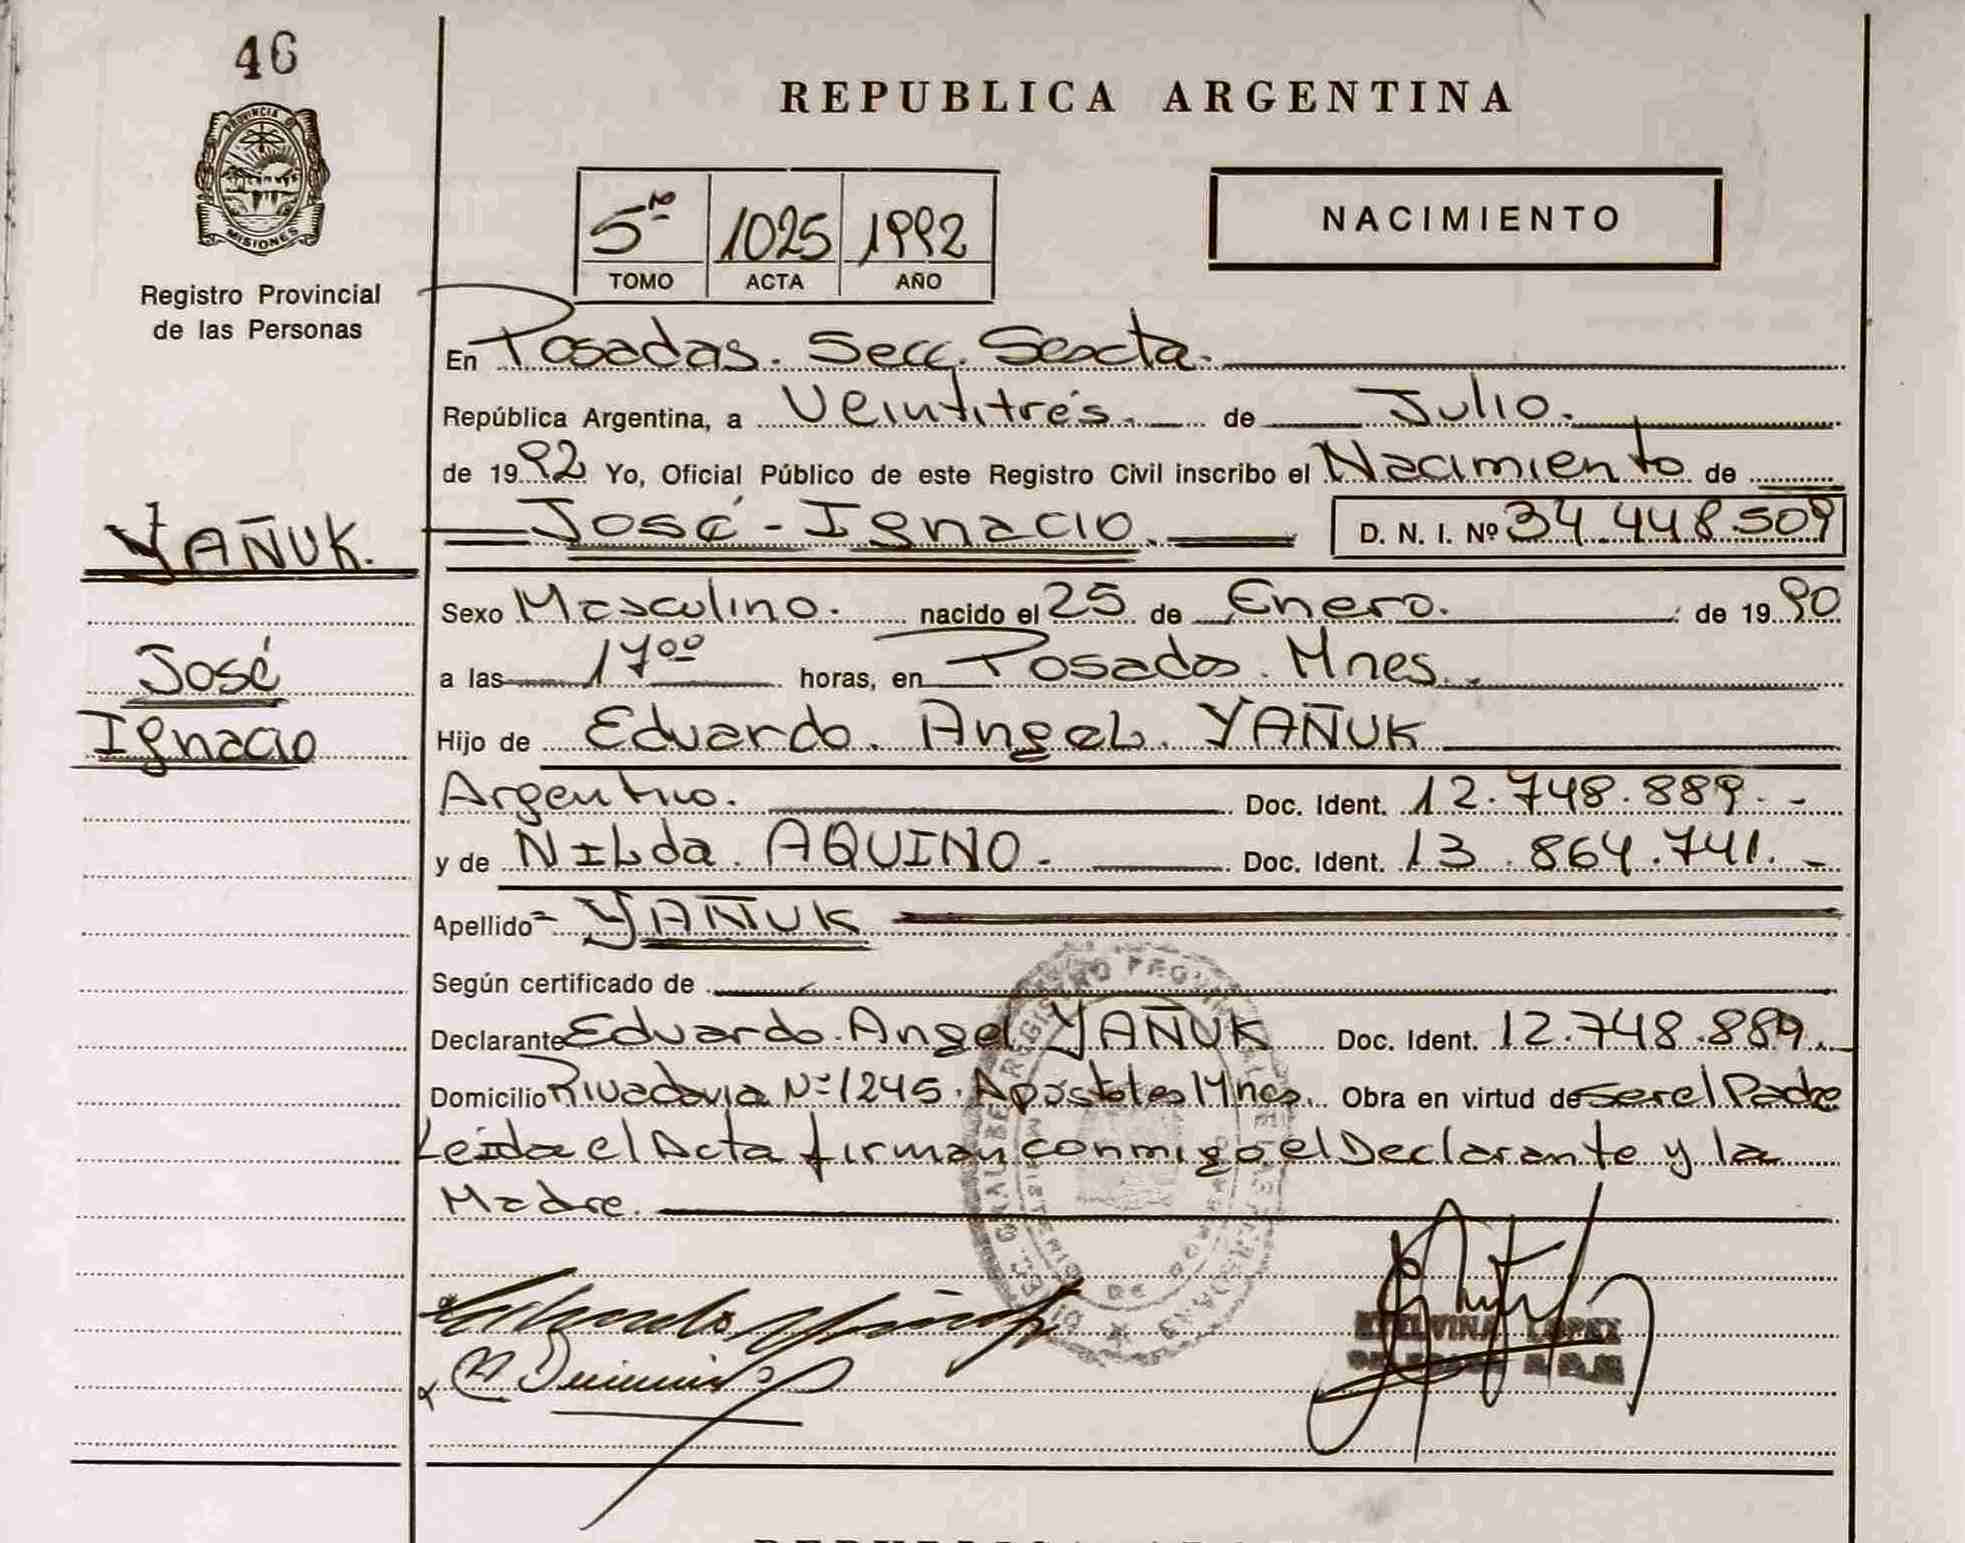 46
PROVINCIA DE
MISIONES
Registro Provincial
de las Personas
REPUBLICA ARGENTINA
5º 1025 1992
TOMO ACTA AÑO
NACIMIENTO
En Posadas. Secc. Sexta.
República Argentina, a Veintitrés. de Julio.
de 1992 Yo, Oficial Público de este Registro Civil inscribo el Nacimiento de
YAÑUK.
José - Ignacio. D. N. I. Nº 34.448.509
Sexo Masculino. nacido el 25 de Enero. de 1990
José
a las 17 00 horas, en Posadas. Mnes.
Ignacio
Hijo de Eduardo. Angel. YAÑUK
Argentino. Doc. Ident. 12.748.889.-
y de NILda. AQUINO.- Doc. Ident. 13.864.741.-
Apellido = YAÑUK
Según certificado de
Declarante Eduardo. Angel YAÑUK Doc. Ident. 12.748.889.
Domicilio Rivadavia Nº 1245. Apóstoles Mnes. Obra en virtud de ser el Padre
Leída el Acta firman conmigo el Declarante y la
Madre.
LOPEZ